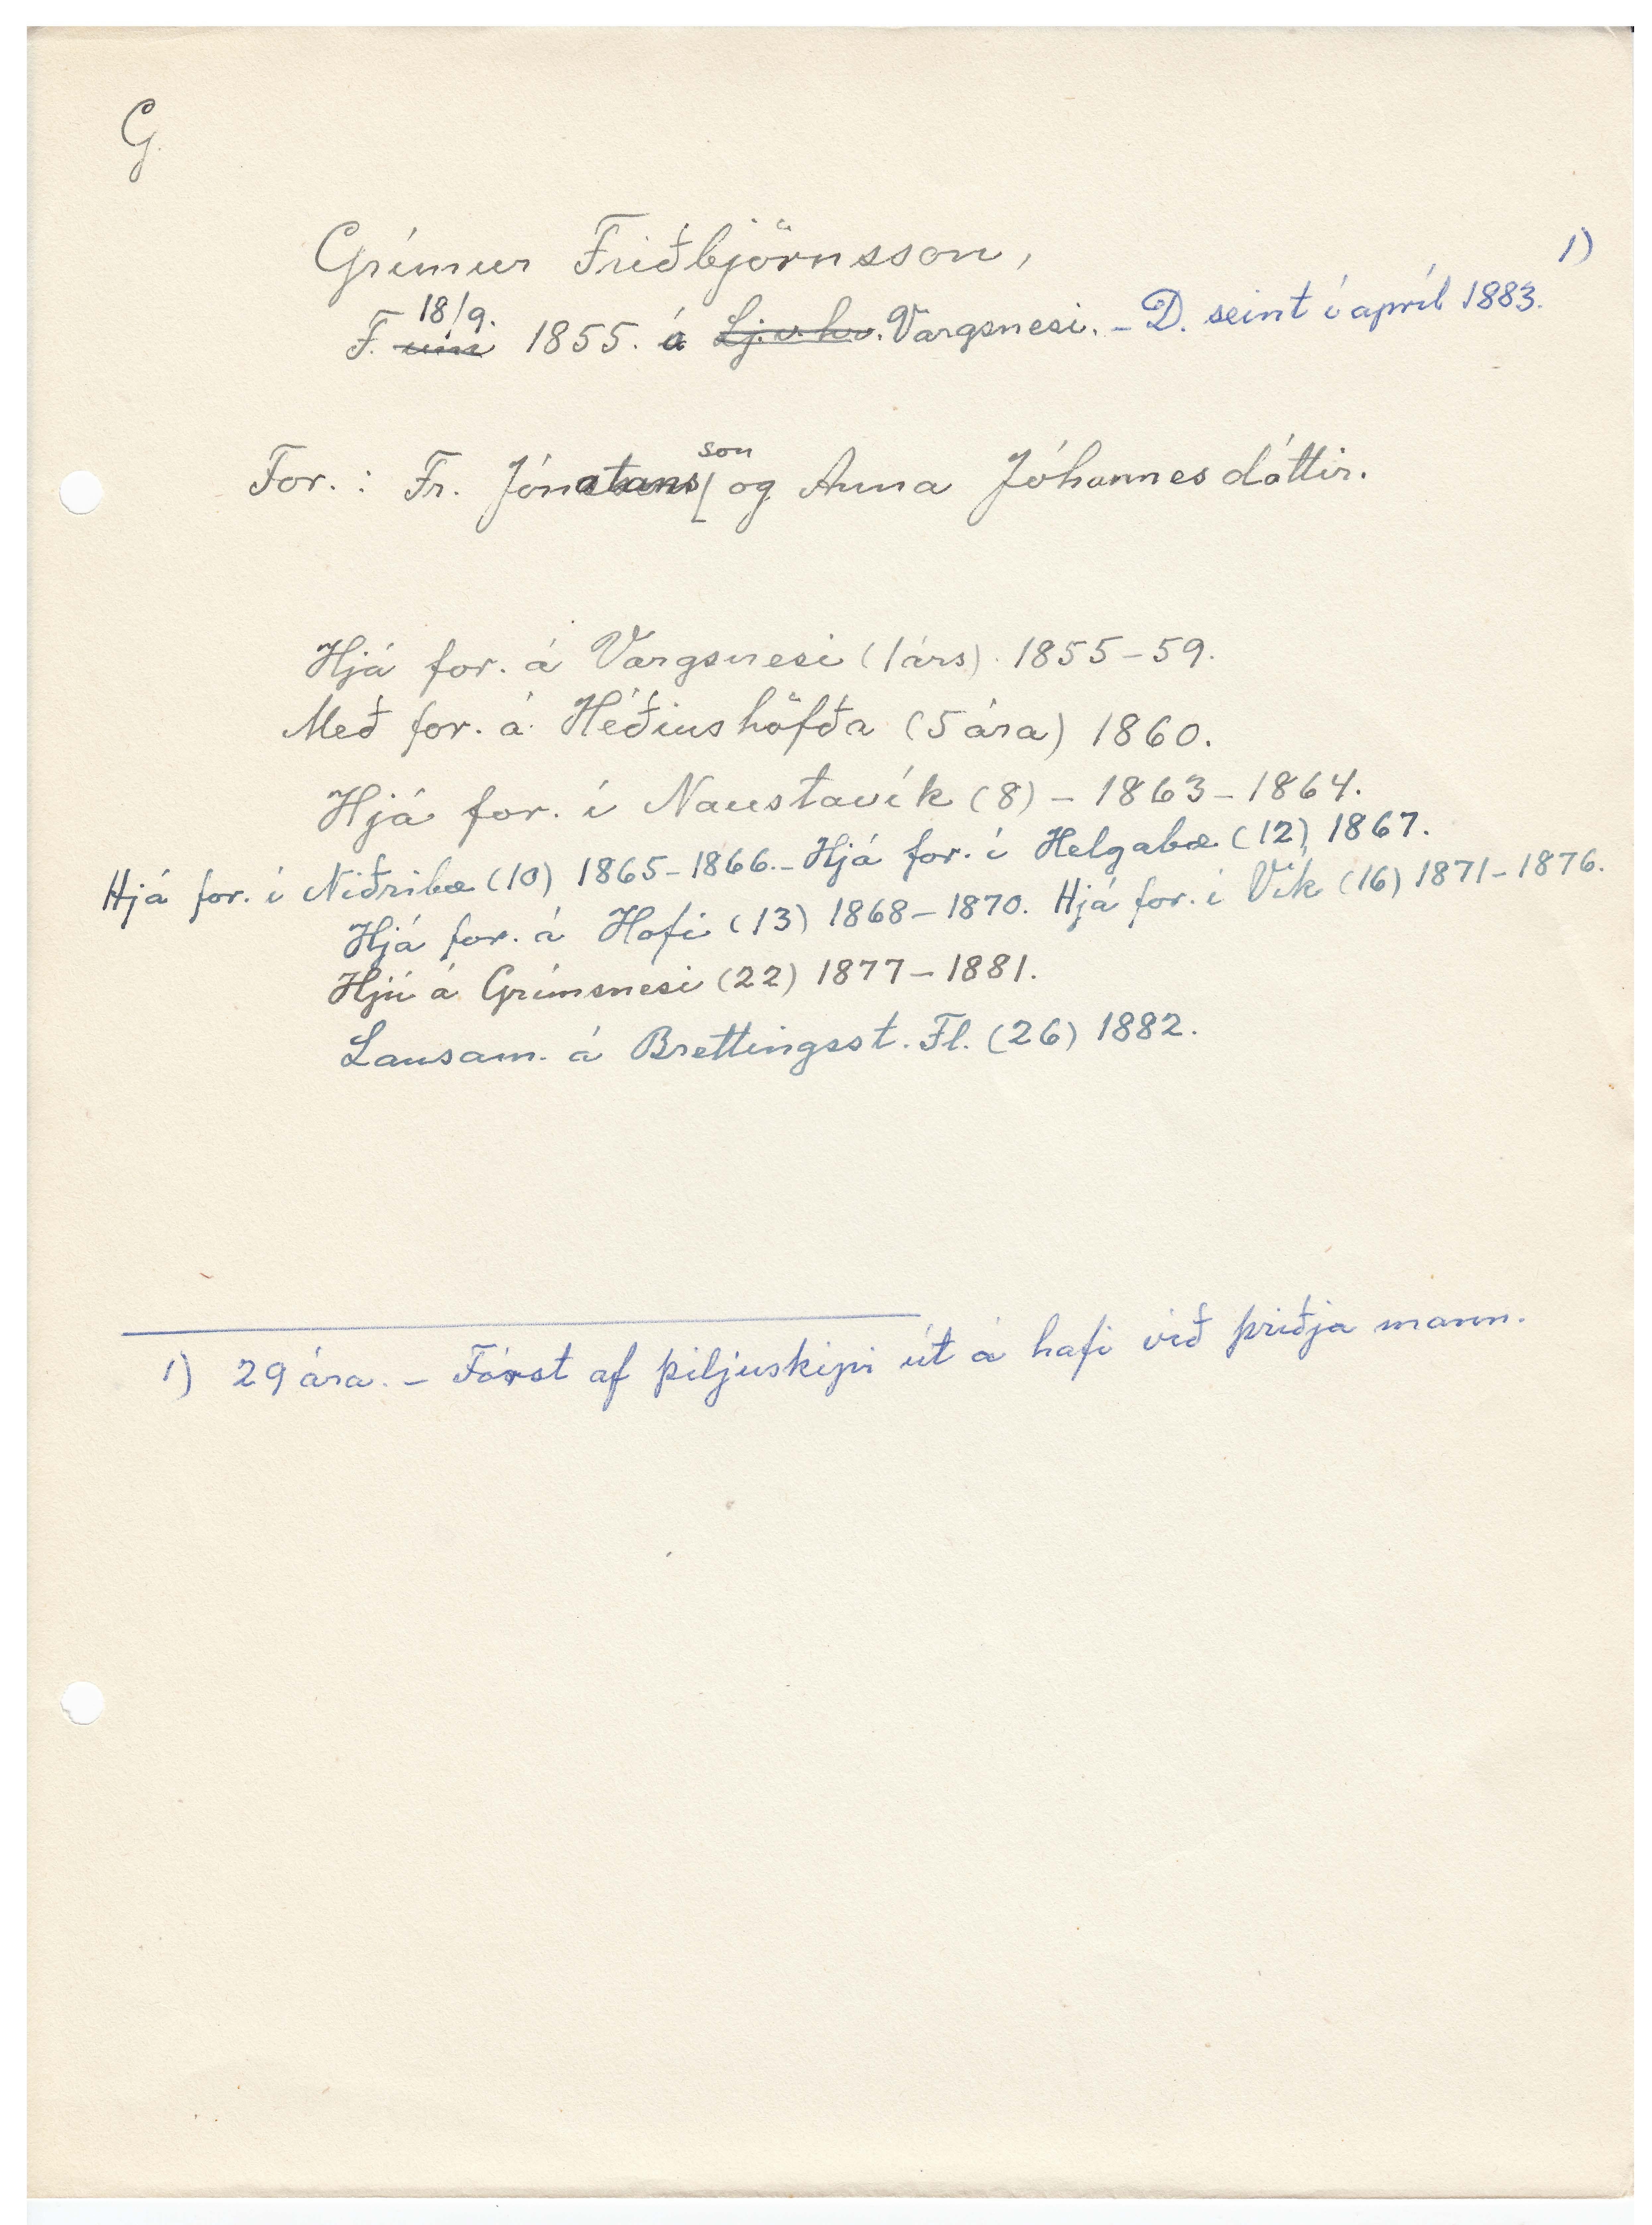 G.
Grímur Friðbjörnsson,
1)
18/9.
F. úm 1855. á Lj.v.hr. Vargsnesi. – D. seint í apríl 1883.
son
For.: Fr. Jónatans og Anna Jóhannesdóttir.
Hjá for. á Vargsnesi (1 árs). 1855–59.
Með for. á Héðinshöfða (5 ára) 1860.
Hjá for. í Naustavík (8) – 1863–1864.
Hjá for. í Niðribæ (10) 1865–1866. – Hjá for. í Helgabæ (12) 1867.
Hjá for. á Hofi (13) 1868–1870. Hjá for. í Vík (16) 1871–1876.
Hjú á Grímsnesi (22) 1877–1881.
Lausam. á Brettingsst. Fl. (26) 1882.
1) 29 ára. – Fórst af þiljuskipi út á hafi við þriðja mann.